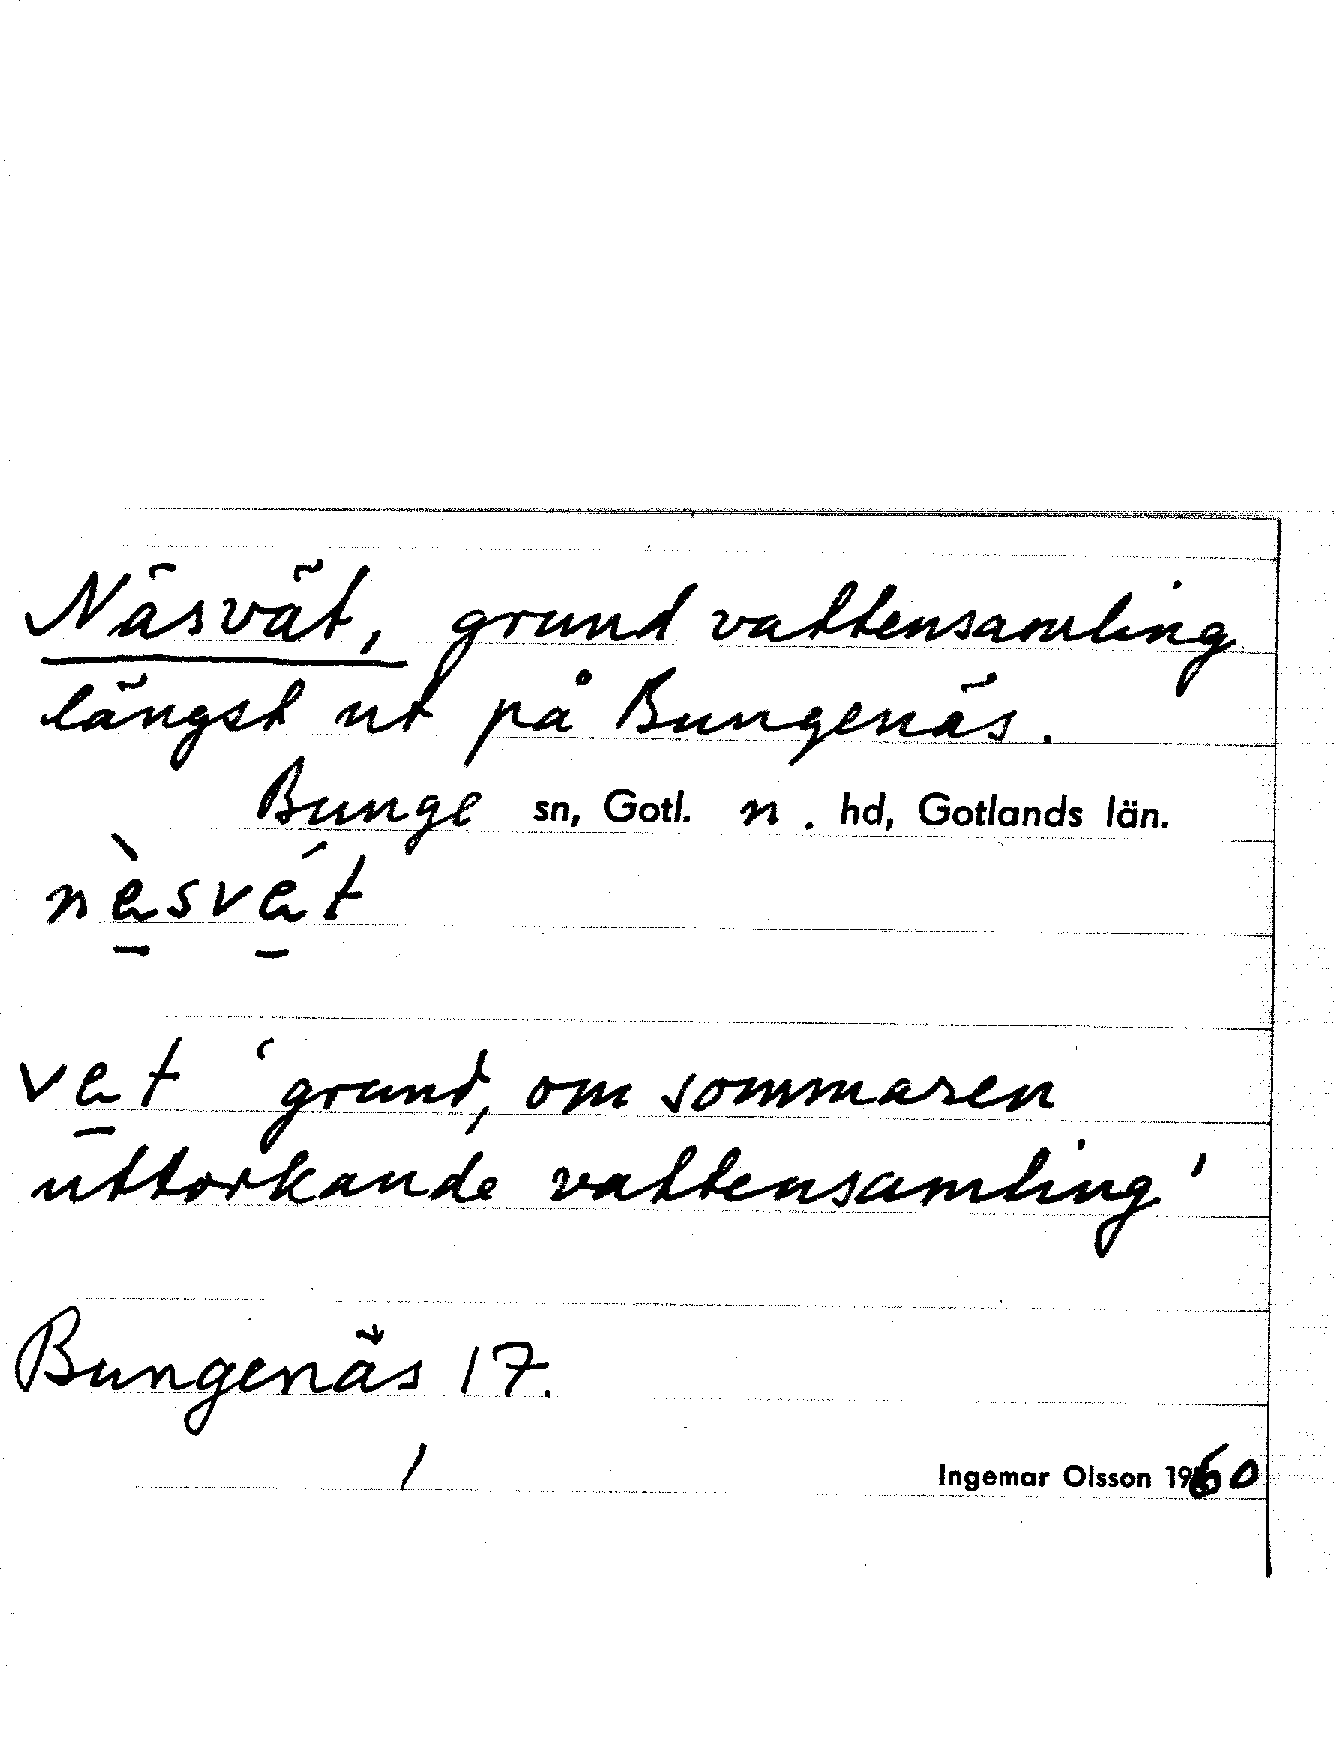 Näsvät, grund vattensamling
längst ut på Bungenäs.
Bunge sn, Gotl. n. hd, Gotlands län.
nä̀svä́t
vät 'grund, om sommaren
uttorkande vattensamling'
Bungenäs 17.
/
Ingemar Olsson 1960